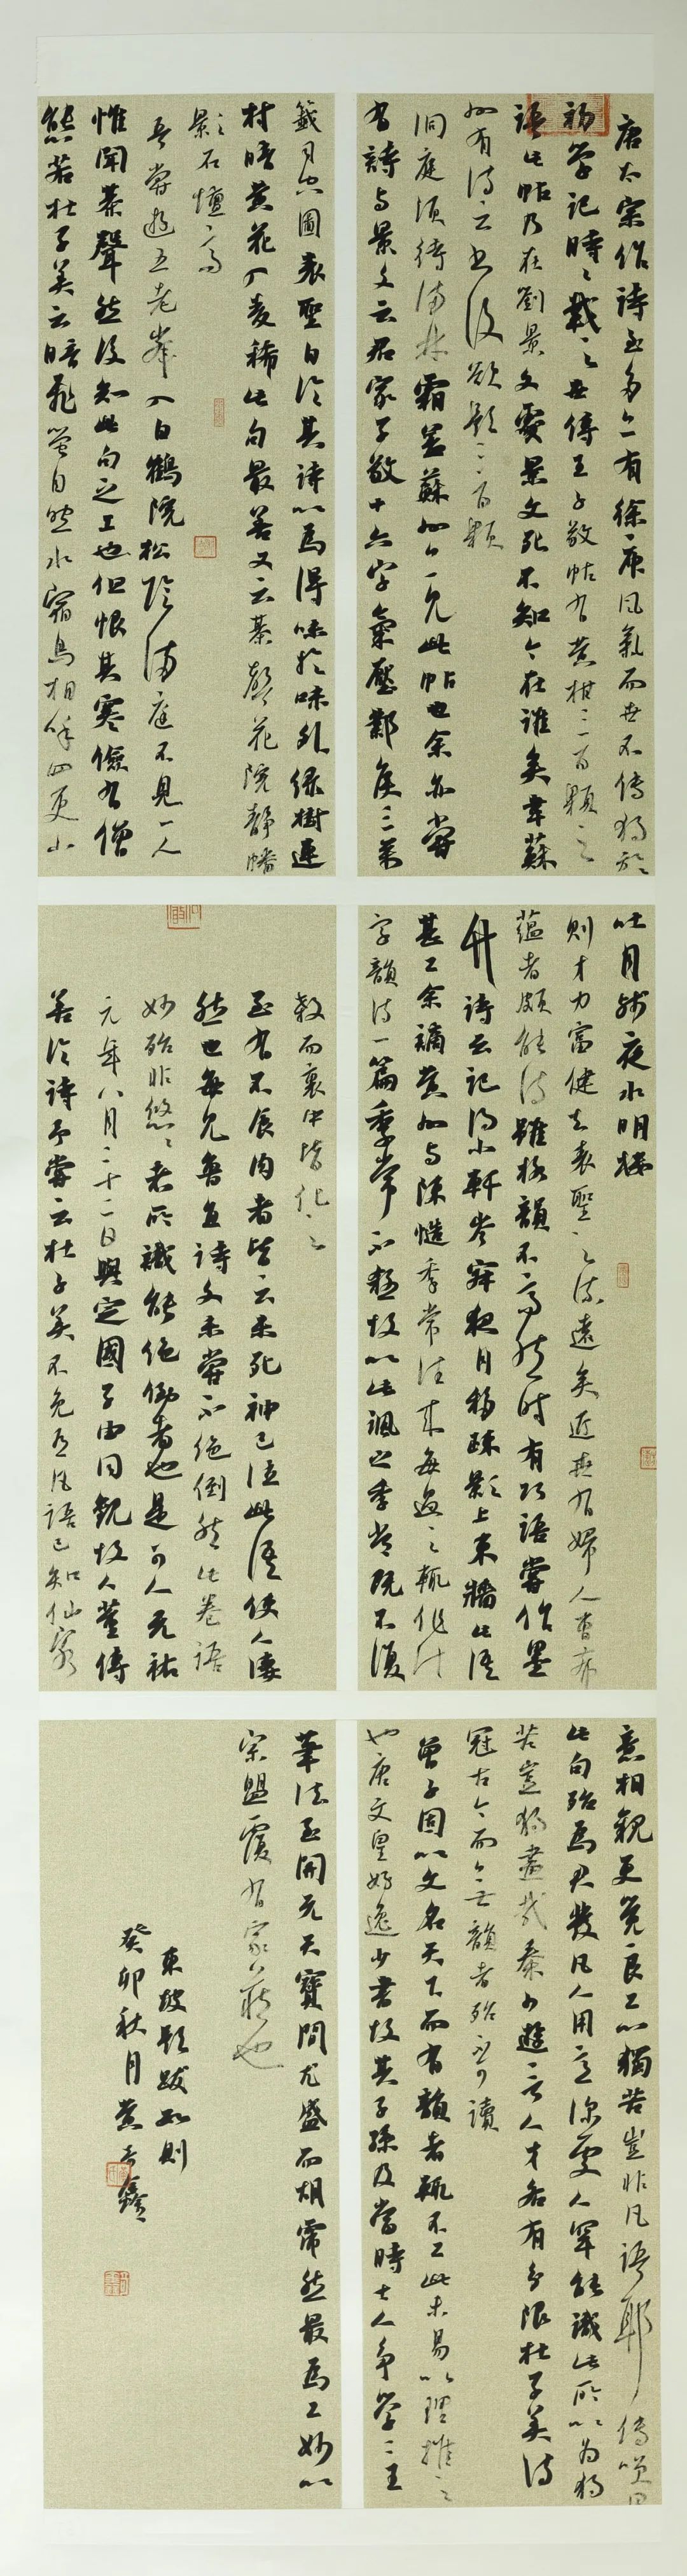 唐太宗作詩至多亦有徐庾風氣而世不傳獨於
初學記時時載之世傳王子敬帖有黃柑三百顆之
語此帖乃在劉景文處景文死不知今在誰矣韋蘇
州有詩云書後欲題三百顆
洞庭須待滿林霜蓋蘇州亦見此帖也余亦嘗
有詩与景文云君家子敬十六字氣壓鄴侯三萬
籤司空圖表聖自論其詩以為得味於味外綠樹連
村暗黃花入麥稀此句最善又云棊聲花院靜幡
影石壇高
吾嘗遊五老峰入白鶴院松陰滿庭不見一人
惟聞棊聲然後知此句之工也但恨其寒儉有僧
態若杜子美云暗飛螢自照水宿鳥相呼四更山
吐月殘夜水明樓
則才力富健去表聖之流遠矣近世有婦人曹希
蘊者頗能詩雖格韻不高然時有巧語嘗作墨
竹詩云記得小軒岑寂夜月移疎影上東牆此語
甚工余謫黃州与陳慥季常往來每過之輒作汁
字韻詩一篇季常不殺故以此諷之季常既不復
殺而裏中皆化之
至有不食肉者皆云未死神已泣此語使人淒
然也每見魯直詩文未嘗不絕倒然此卷語
妙殆非悠悠者所識能絕倒者也是可人元祐
元年八月二十二日與定國子由同觀故人董傳
善論詩予嘗云杜子美不免有凡語已知仙客
意相親更覺良工心獨苦豈非凡語耶傳笑曰
此句殆為君發凡人用意深處人罕能識此所以為獨
苦豈獨畫哉秦少遊言人才各有分限杜子美詩
冠古今而今無韻者殆不可讀
曾子固以文名天下而有韻者輒不工此未易以理推之
也唐文皇好逸少書故其子孫及當時士人爭學二王
筆法至開元天寶間尤盛而胡霈然最為工妙以
宗盟覆有家藏也
東坡題跋數則
癸卯秋月黃鑫